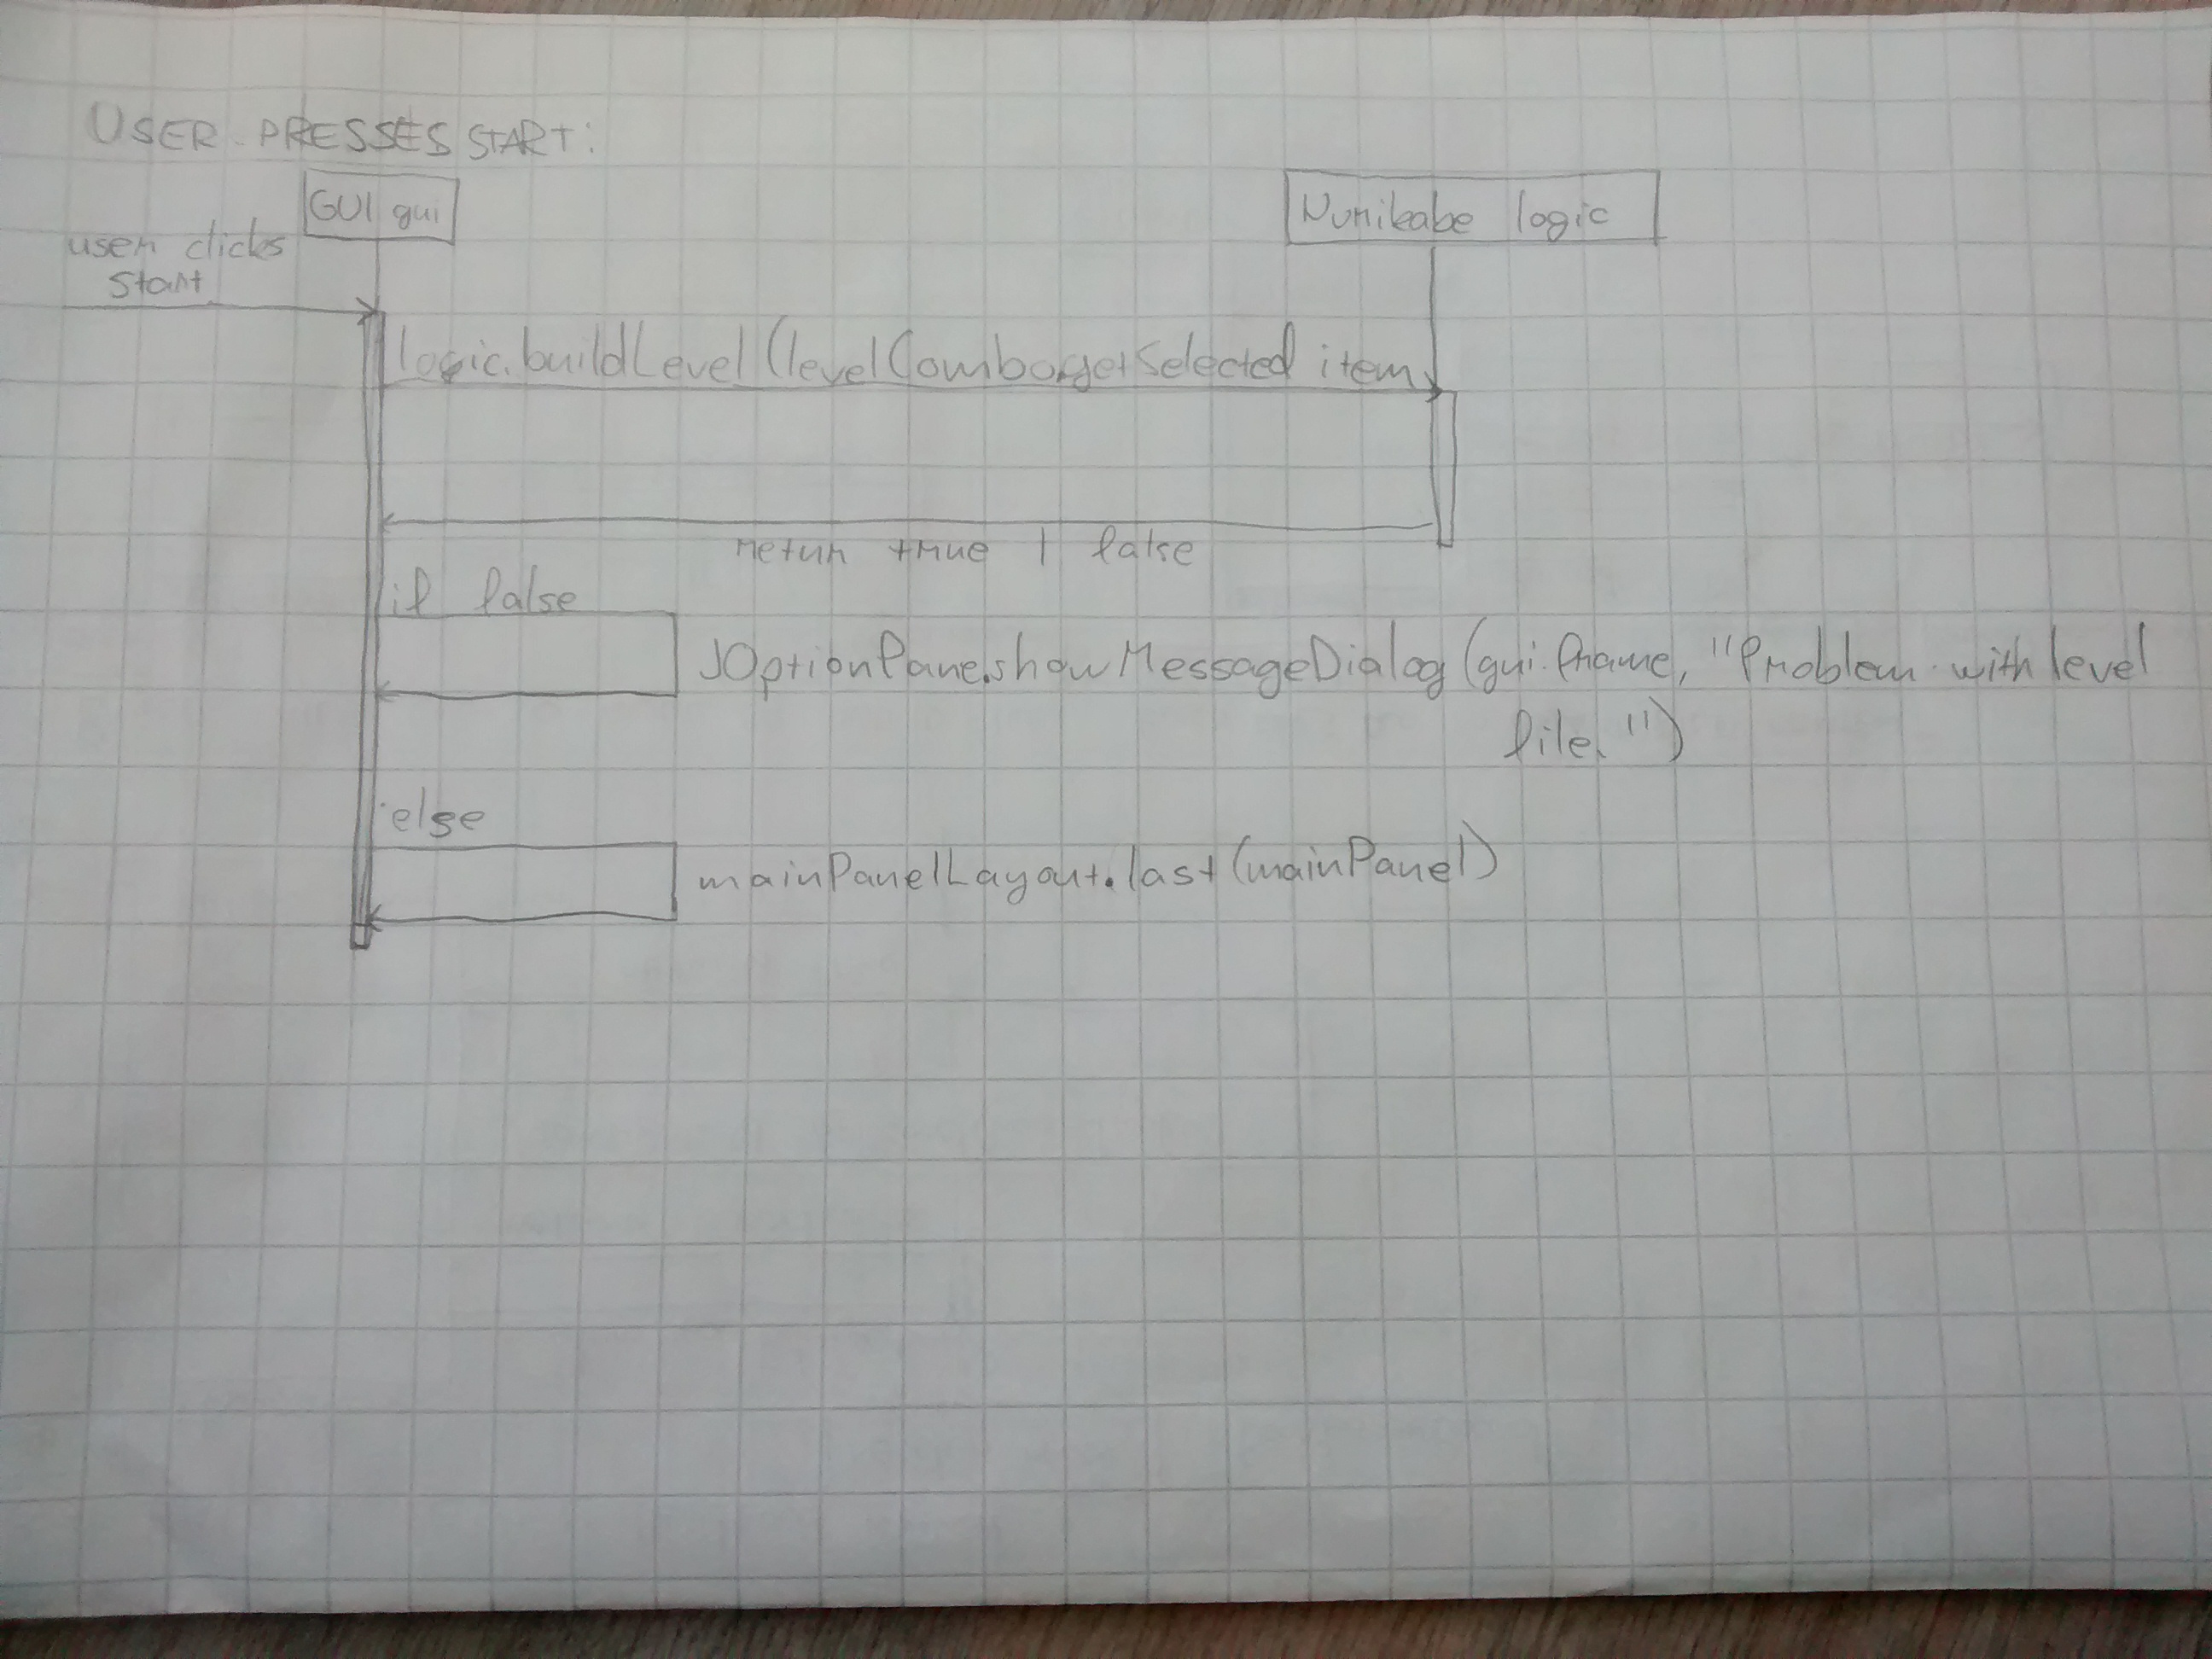 USER PRESSES START:
GUI gui
Nurikabe logic
user clicks
start
logic.buildLevel(levelCombo.getSelected item
retur true | false
if false
JOptionPane.showMessageDialog(gui.frame, "Problem with level
file.")
else
mainPanelLayout.last(mainPanel)